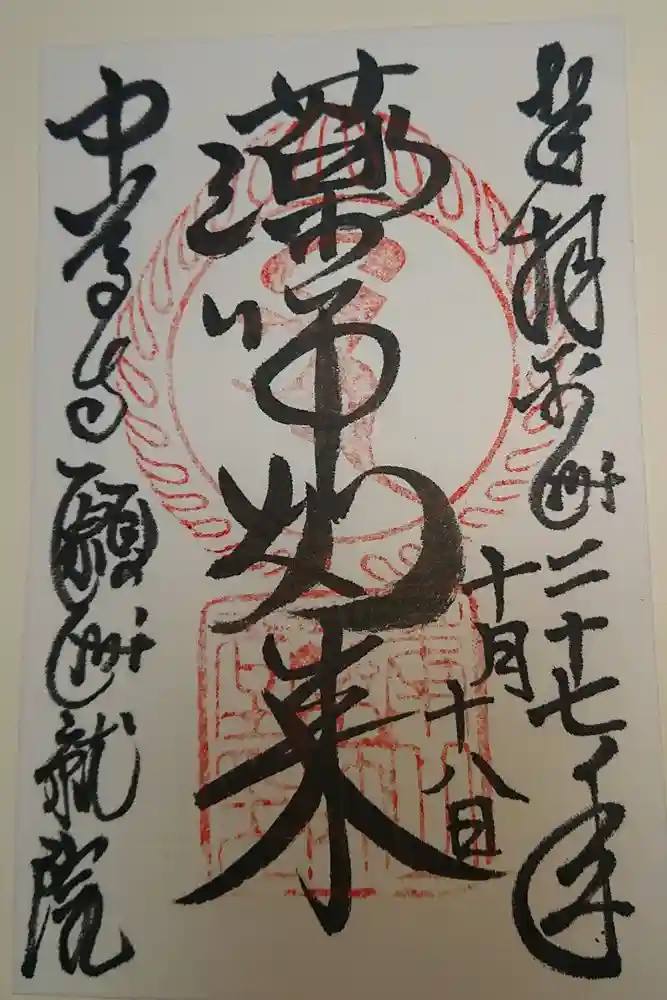 拝平成二十七年
十月
十八日
薬師如来
中尊寺願成就院